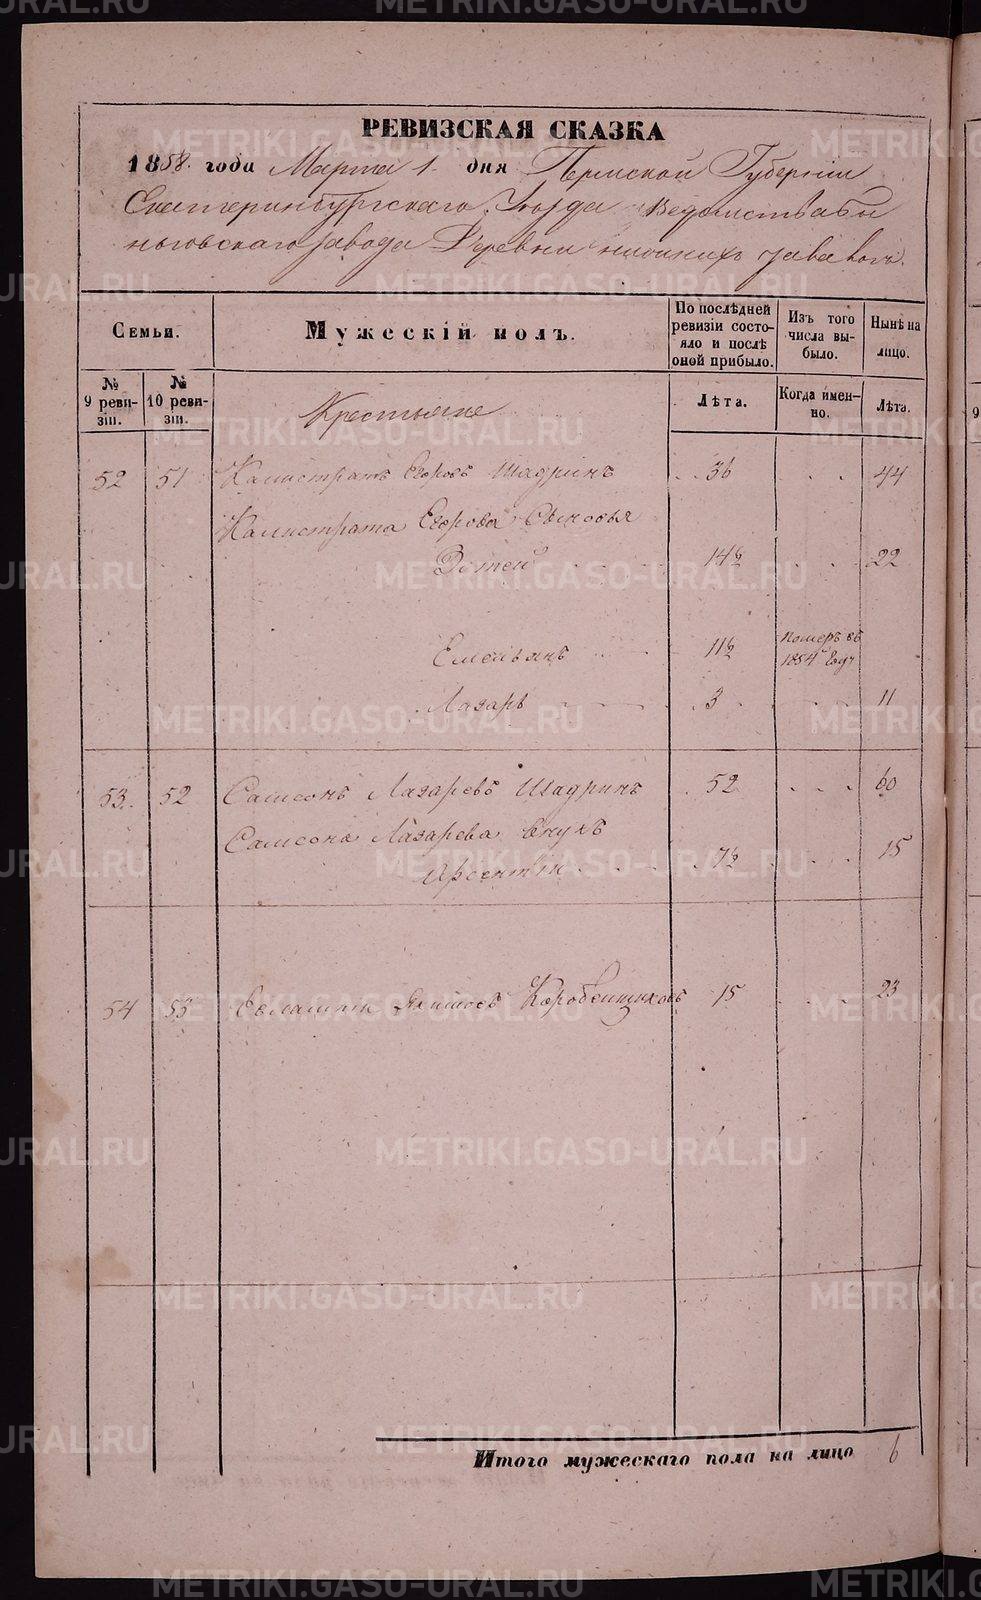 РЕВИЗСКАЯ СКАЗКА
1858. года Марта 1. дня Пермской Губернии
Екатеринбургскаго Уезда Ведомства
завода Деревни нижнихъ
Семьи.
Мужескій полъ.
По послѣдней ревизіи состояло и послѣ оной прибыло.
Изъ того числа выбыло.
Нынѣ на лицо.
№ 9 ревизіи.
№ 10 ревизіи.
Лѣта.
Когда именно.
Лѣта.
Крестьяне
52 51 Калистратъ Егоровъ Шадринъ 36 44
Калистрата Егорова Сыновья
14½ 22
Емельянъ 11½ Померъ въ 1854 Году
Лазарь 3 11
53. 52 Самсонъ Лазаревъ Шадринъ 52 60
Самсона Лазарева внукъ
7½ 15
54 53 15 23
Итого мужескаго пола на лицо 6
METRIKI.GASO-URAL.RU